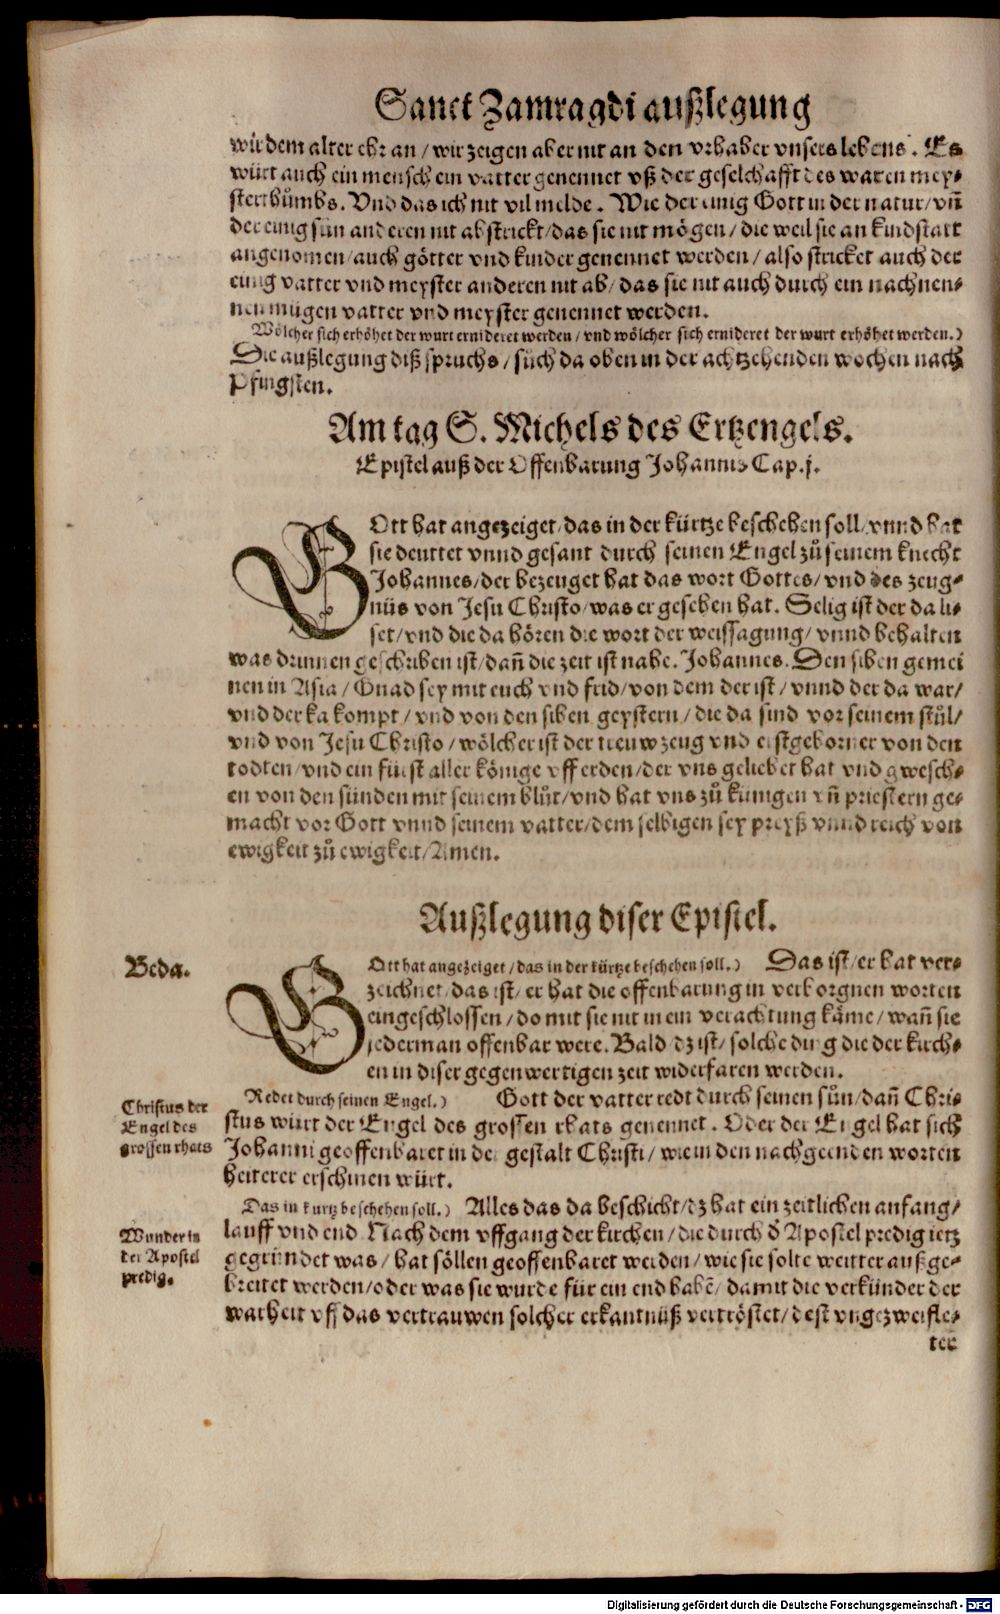 Sanct Zamragdi außlegung
wir dem alter ehr an / wir zeigen aber nit an den vrhaber vnsers lebens. Es
würt auch ein mensch ein vatter genennet vß der geselchafft des waren mey-
sterthůmbs. Vnd das ich nit vil melde. Wie der einig Gott in der natur / vn̄
der einig sůn anderen nit abstrickt / das sie nit mögen / die weil sie an kindstatt
angenomen / auch götter vnd kinder genennet werden / also stricket auch der
einig vatter vnd meyster anderen nit ab / das sie nit auch durch ein nachnen-
nen mügen vatter vnd meyster genennet werden.
Wölcher sich erhöhet der wurt ernideret werden / vnd wölcher sich ernideret der wurt erhöhet werden.)
Die außlegung diß spruchs / sůch da oben in der achtzehenden wochen nach
Pfingsten.
Am tag S. Michels des Ertzengels.
Epistel auß der Offenbarung Johannis Cap. j.
GOtt hat angezeiget / das in der kürtze beschehen soll / vnnd hat
sie deuttet vnnd gesant durch seinen Engel zů seinem knecht
Johannes / der bezeuget hat das wort Gottes / vnd des zeug-
nüs von Jesu Christo / was er gesehen hat. Selig ist der da li-
set / vnd die da hören die wort der weissagung / vnnd behalten
was drinnen geschriben ist / dan̄ die zeit ist nahe. Johannes. Den siben gemei
nen in Asia / Gnad sey mit euch vnd frid / von dem der ist / vnnd der da war /
vnd der ka kompt / vnd von den siben geystern / die da sind vor seinem stůl /
vnd von Jesu Christo / wölcher ist der neuw zeug vnd erstgeborner von den
todten / vnd ein fürst aller könige vff erden / der vns geliebet hat vnd gwesch-
en von den sünden mit seinem blůt / vnd hat vns zů künigen vn̄ priestern ge-
macht vor Gott vnnd seinem vatter / dem selbigen sey preyß vnnd reich von
ewigkeit zů ewigkeit / Amen.
Außlegung diser Epistel.
Beda.
GOtt hat angezeiget / das in der kürtze beschehen soll.) Das ist / er hat ver-
zeichnet / das ist / er hat die offenbarung in verborgnen worten
eingeschlossen / do mit sie nit in ein verachtung käme / wan̄ sie
jederman offenbar were. Bald dz ist / solche ding die der kirch-
en in diser gegenwertigen zeit widerfaren werden.
Christus der
Engel des
grossen rhats
Redet durch seinen Engel.) Gott der vatter redt durch seinen sůn / dan̄ Chri-
stus würt der Engel des grossen rhats genennet. Oder der Engel hat sich
Johanni geoffenbaret in der gestalt Christi / wie in den nachgenden worten
heiterer erschinen würt.
Wunder in
der Apostel
predig.
Das in kurtz beschehen soll.) Alles das da beschicht / dz hat ein zeitlichen anfang /
lauff vnd end. Nach dem vffgang der kirchen / die durch d̄ Apostel predig ietz
gegründet was / hat söllen geoffenbaret werden / wie sie solte weitter außge-
breitet werden / oder was sie wurde für ein end habē / damit die verkünder der
warheit vff das vertrauwen solcher erkantnüß vertröstet / dest vngezweifle-
ter
Digitalisierung gefördert durch die Deutsche Forschungsgemeinschaft - DFG